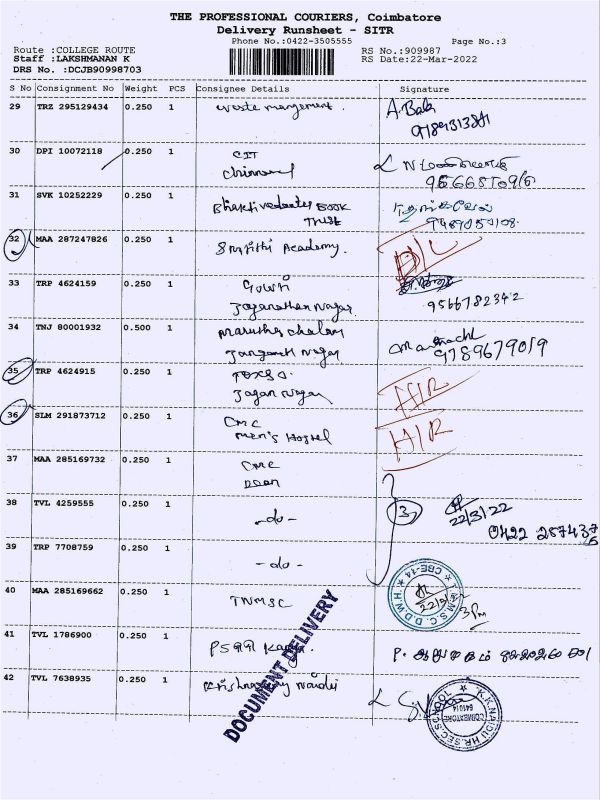 THE PROFESSIONAL COURIERS, Coimbatore
Delivery Runsheet - SITR
Phone No.:0422-3505555 Page No.:3
Route :COLLEGE ROUTE RS No.:909987
Staff :LAKSHMANAN K RS Date:22-Mar-2022
DRS No. :DCJB90998703
S No Consignment No Weight PCS Consignee Details Signature
29 TRZ 295129434 0.250 1 A. Bala
30 DPI 10072118 0.250 1 CIT
Chinnavel
31 SVK 10252229 0.250 1 Bhaktivedanta BOOK
TRUST
32 MAA 287247826 0.250 1 Smrithi Academy. D/L
33 TRP 4624159 0.250 1 Gowri
Jaganathan Nagar 9566782342
34 TNJ 80001932 0.500 1 Marutha chalam
Nagar 9789679019
35 TRP 4624915 0.250 1 H/R
Jagan Nagar
36 SLM 291873712 0.250 1 CMC H/R
men's Hostel
37 MAA 285169732 0.250 1 CMC
Dean
38 TVL 4259555 0.250 1 -do- 3
22/3/22
0422
39 TRP 7708759 0.250 1 -do-
40 MAA 285169662 0.250 1 TNMSC
CBE-14
3 Pm
41 TVL 1786900 0.250 1
42 TVL 7638935 0.250 1 Naidu
DOCUMENT DELIVERY
K.K.NAIDU HR.SEC.SCHOOL
COIMBATORE
641014